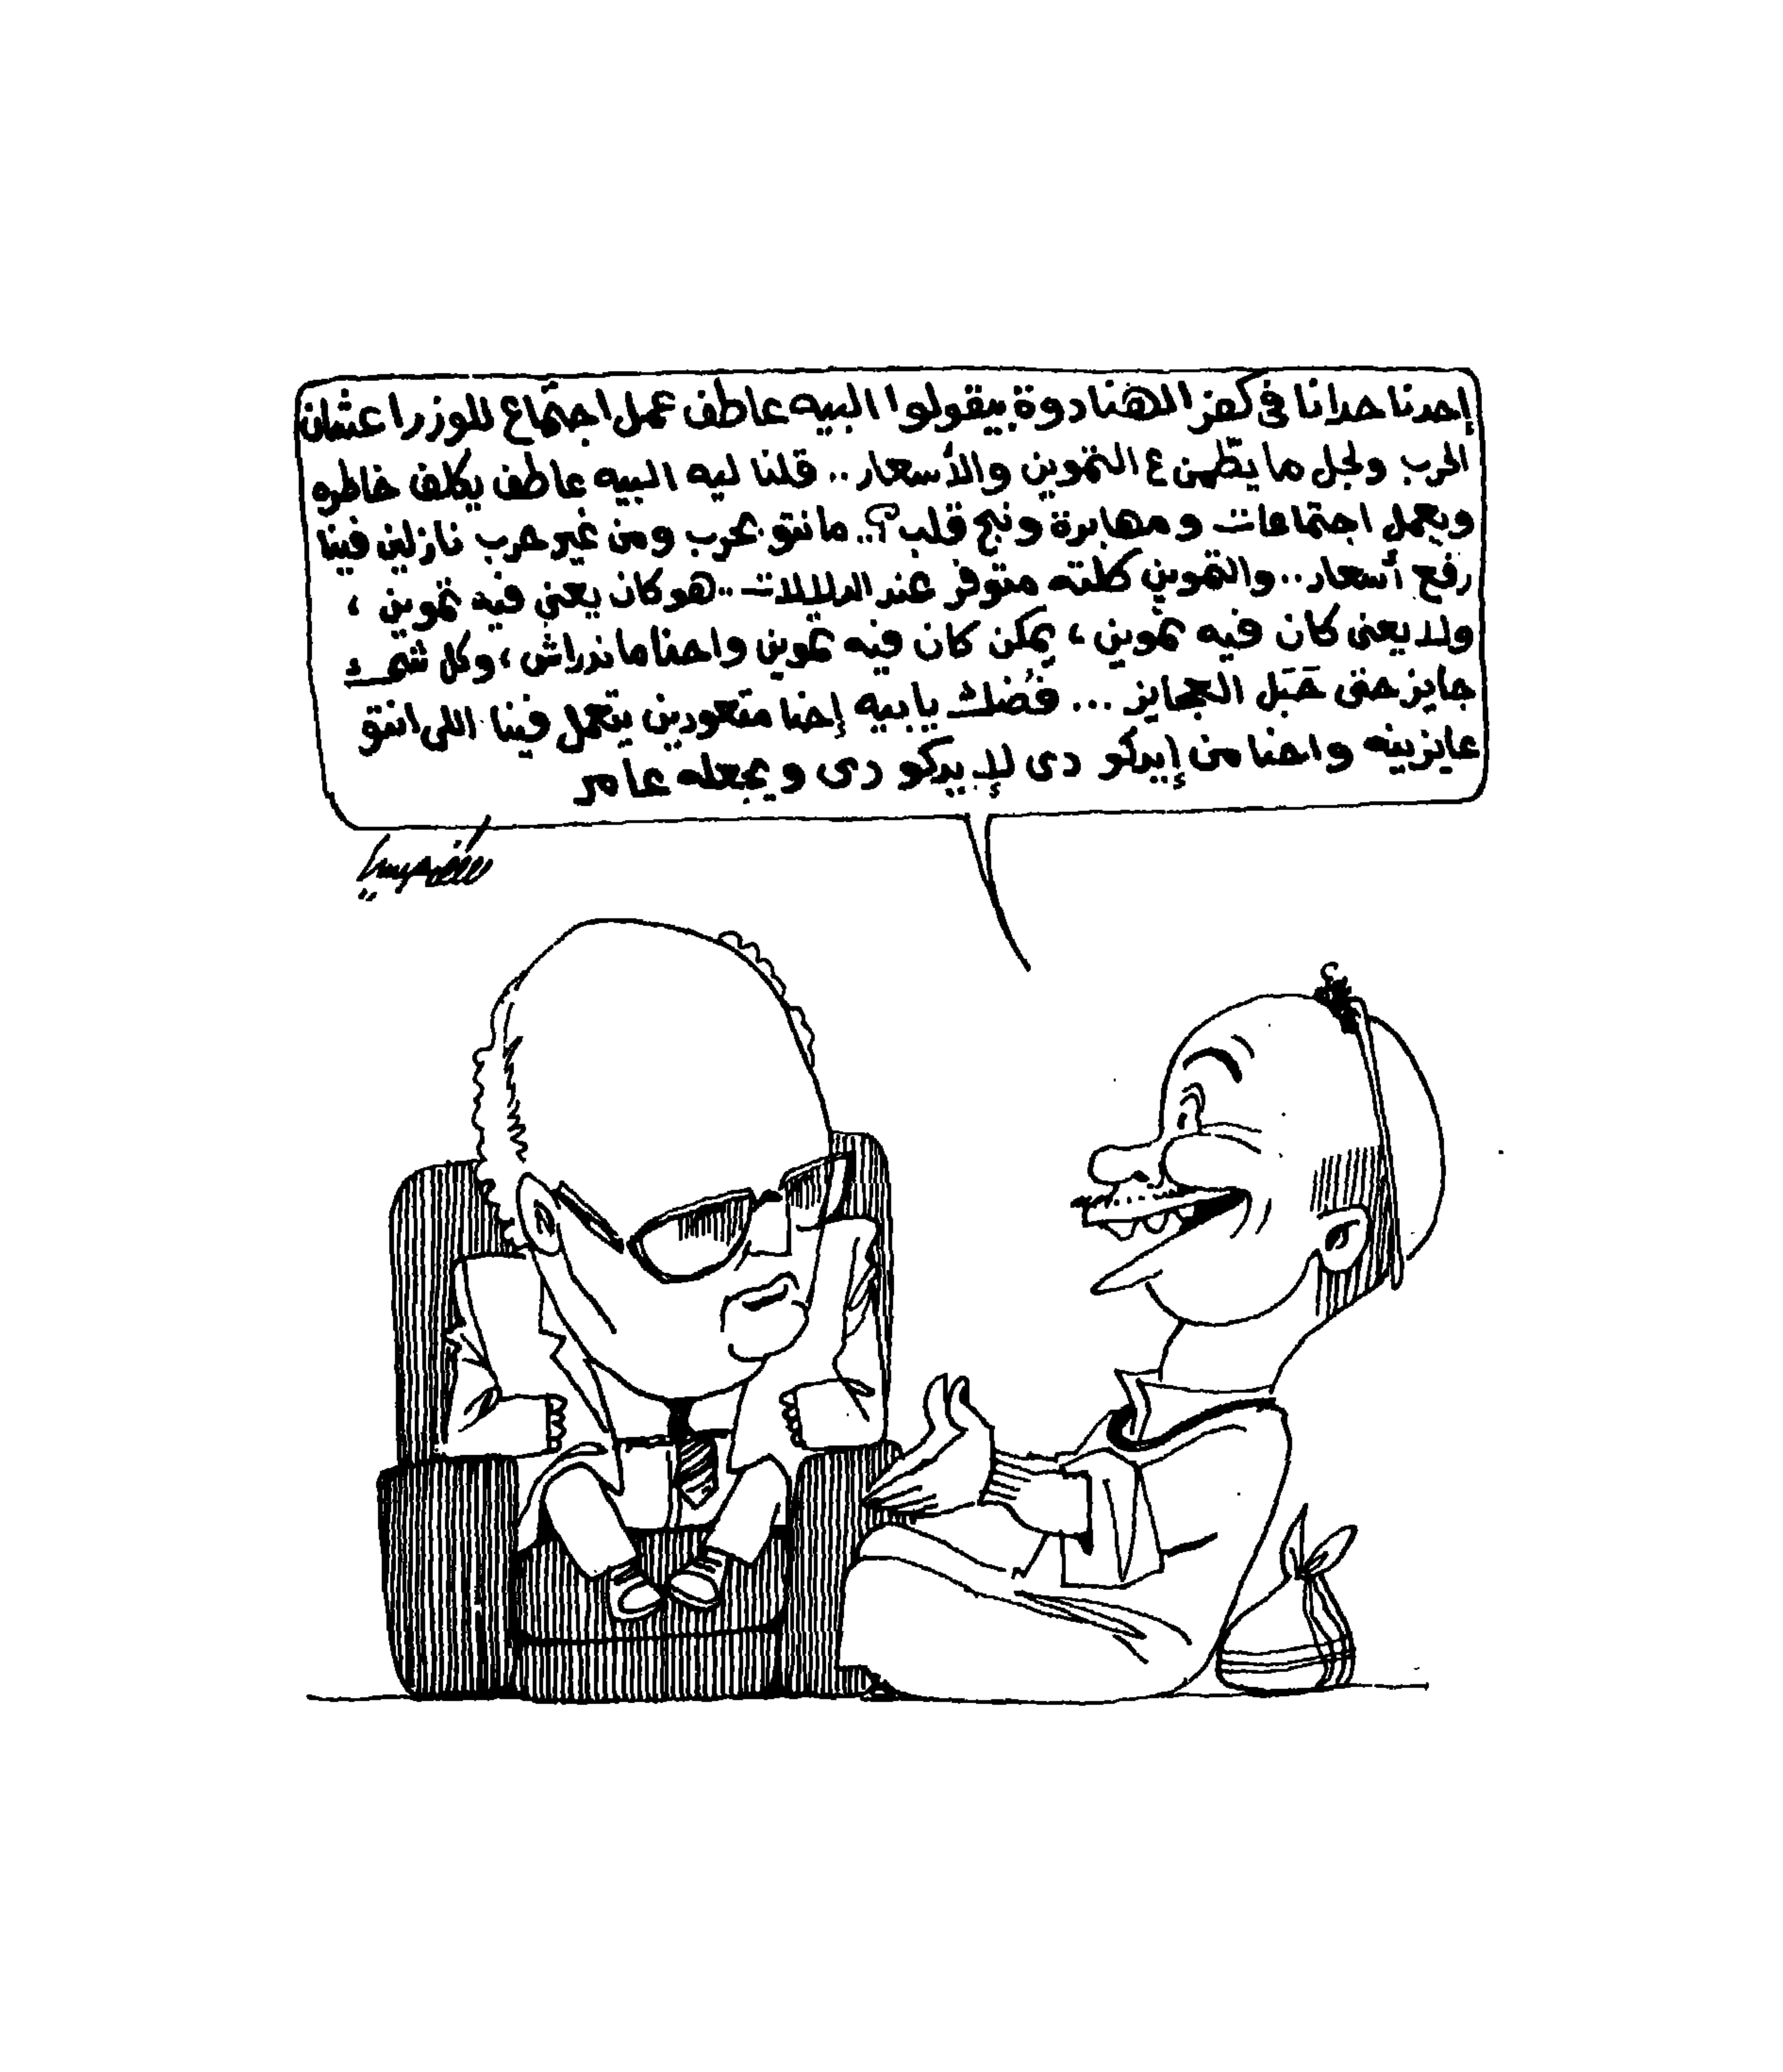 إحدنا حدانا فى كفر الهنادوة بيقولوا البيه عاطف عمل اجتماع للوزرا عشان
الحرب ولجل ما يطّمن ع التموين والأسعار .. قلنا ليه البيه عاطف يكلف خاطره
ويعمل اجتماعات ومهابرة ونبح قلب؟.. مانتو بحرب ومن غير حرب نازلين فينا
رفع أسعار .. والتموين كلته متوفر عند الدلالات .. هو كان يعنى فيه تموين ،
ولا يعنى كان فيه تموين ، يمكن كان فيه تموين واحنا ماندراش ، وكل شىء
جايز حتى حَبَل العجايز ... فُضك يا بيه إحنا متعودين يتعمل فينا اللى انتو
عايزينه واحنا من إيدكو دى لإيدكو دى ويجعله عامر